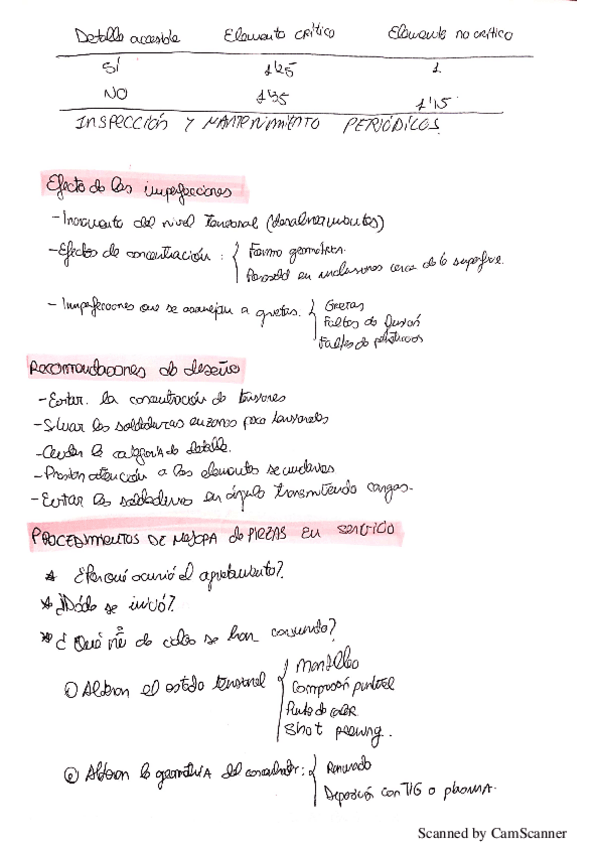 Detalle accesible Elemento crítico Elemento no crítico
SÍ 1'25 1.
NO 1'35 1'15
INSPECCIÓN Y MANTENIMIENTO PERIÓDICOS.
Efecto de las imperfecciones
- Incremento del nivel tensional (desalineamientos)
- Efectos de concentración: { Forma geométrica.
en inclusiones cerca de la superficie.
- Imperfecciones que se asemejan a grietas. { Grietas
Faltas de fusión
Faltas de
Recomendaciones de diseño
- Evitar la concentración de tensiones
- Situar las soldaduras en zonas poco tensionadas
- Cuidar la categoría de detalle.
- Prestar atención a los elementos secundarios
- Evitar las soldaduras en ángulo transmitiendo cargas.
PROCEDIMIENTOS DE MEJORA de PIEZAS EN SERVICIO
* ¿Por qué ocurrió el agrietamiento?
* ¿Dónde se inició?
* ¿Qué nº de ciclos se han consumido?
① Alteran el estado tensional { Martilleo
Compresión puntual
Punto de calor
Shot peening.
② Alteran la geometría del concentrador: { Ranurado
Deposición con TIG o plasma.
Scanned by CamScanner